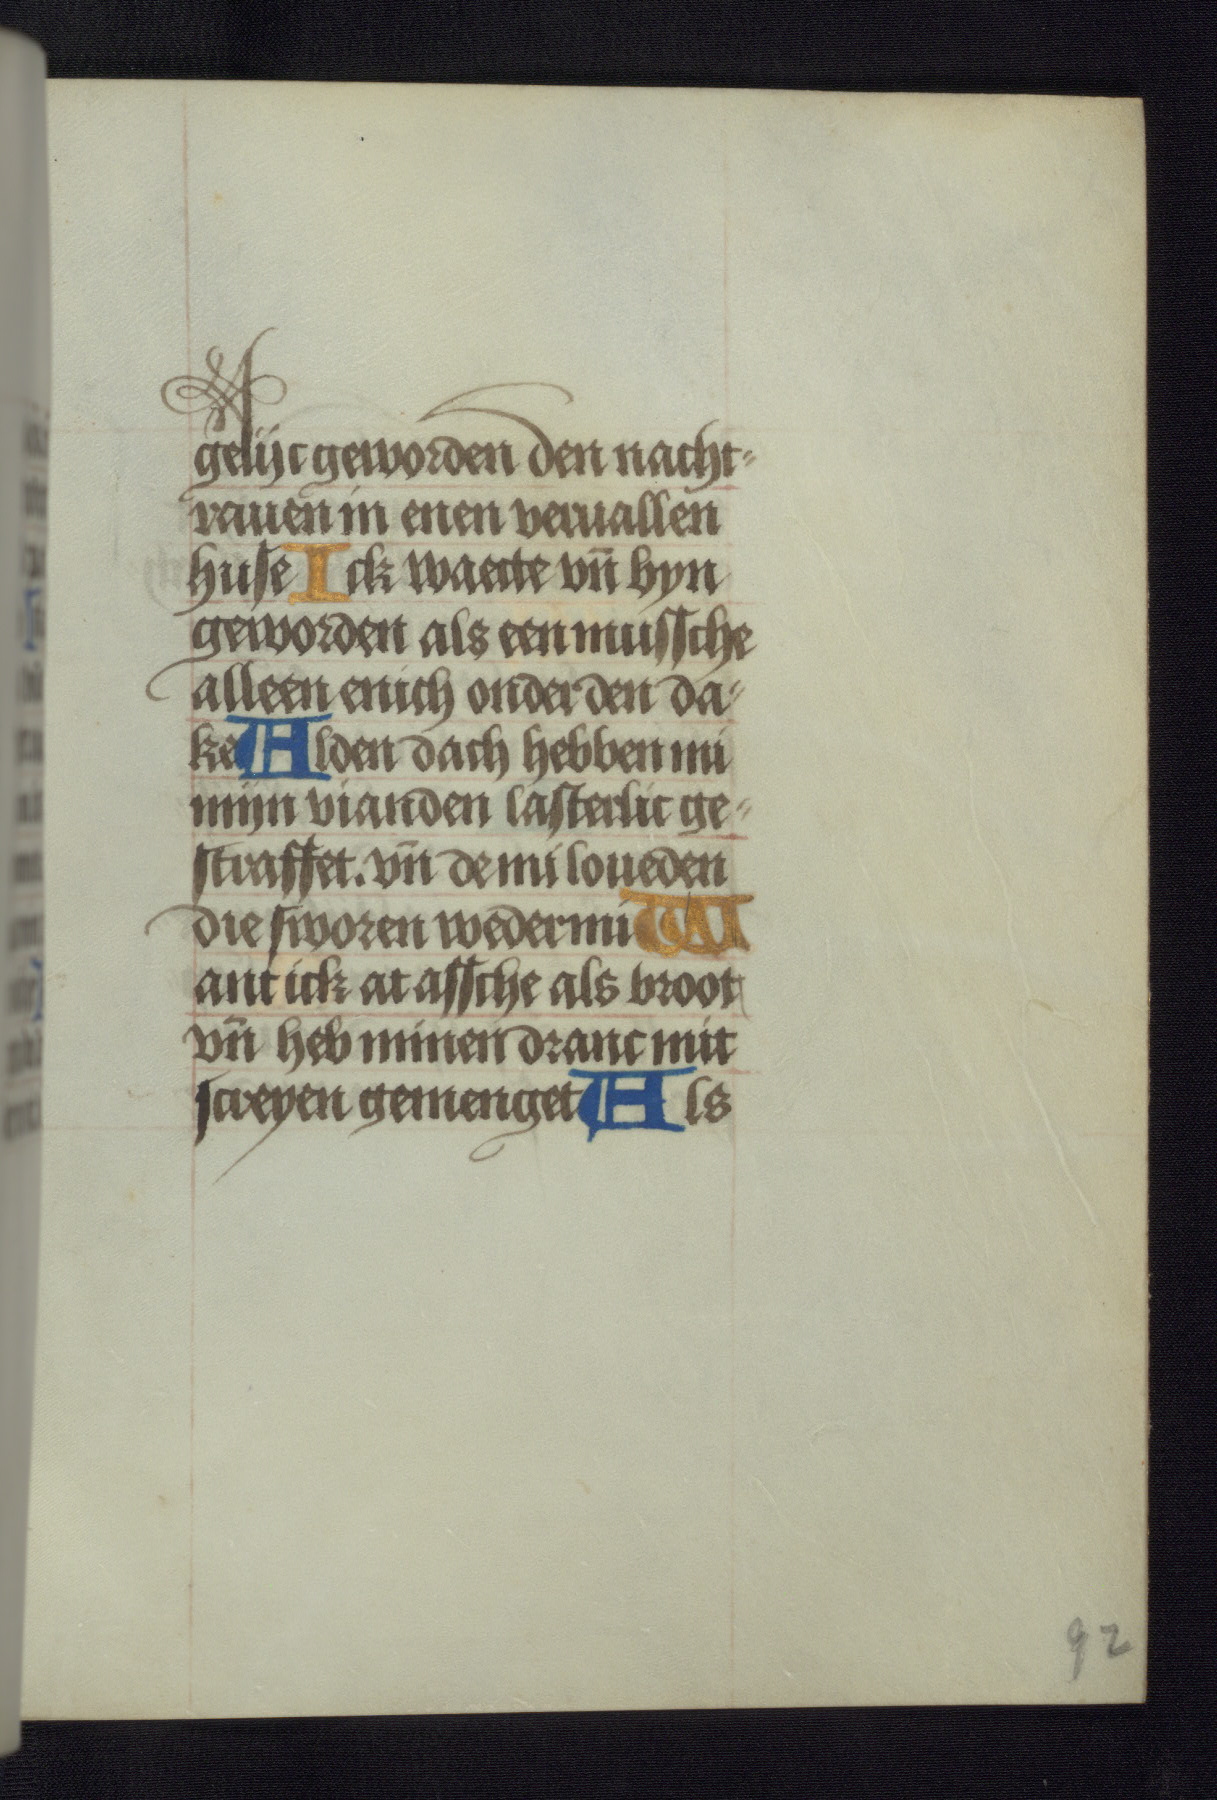 gelijc geworden den nacht-
rauen in enen veruallen
huse Ick waecte vn̄ byn
geworden als een mussche
alleen enich onder den da-
ke Alden dach hebben mi
mijn vianden lasterlic ge-
straffet. vn̄ de mi loueden
die sworen weder mi W
ant ick at assche als broot
vn̄ heb minen dranc mit
screyen gemenget Als
92